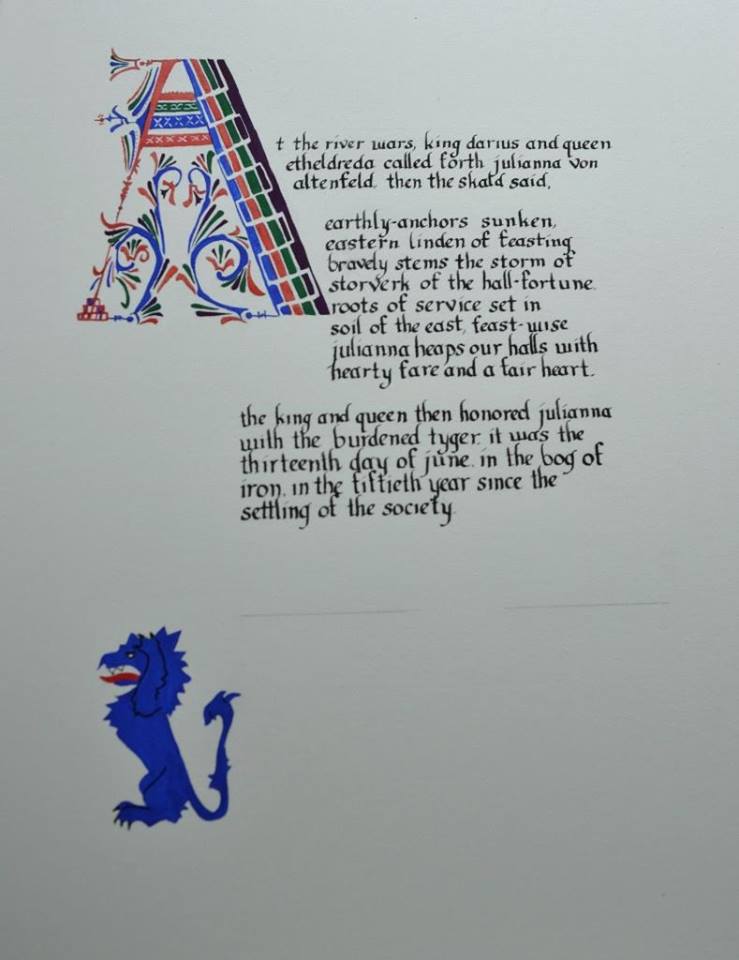 At the river wars, king darius and queen
etheldreda called forth julianna von
altenfeld. then the skald said,
earthly-anchors sunken,
eastern linden of feasting
bravely stems the storm of
storverk of the hall-fortune.
roots of service set in
soil of the east, feast-wise
julianna heaps our halls with
hearty fare and a fair heart.
the king and queen then honored julianna
with the burdened tyger. it was the
thirteenth day of june. in the bog of
iron. in the fiftieth year since the
settling of the society.